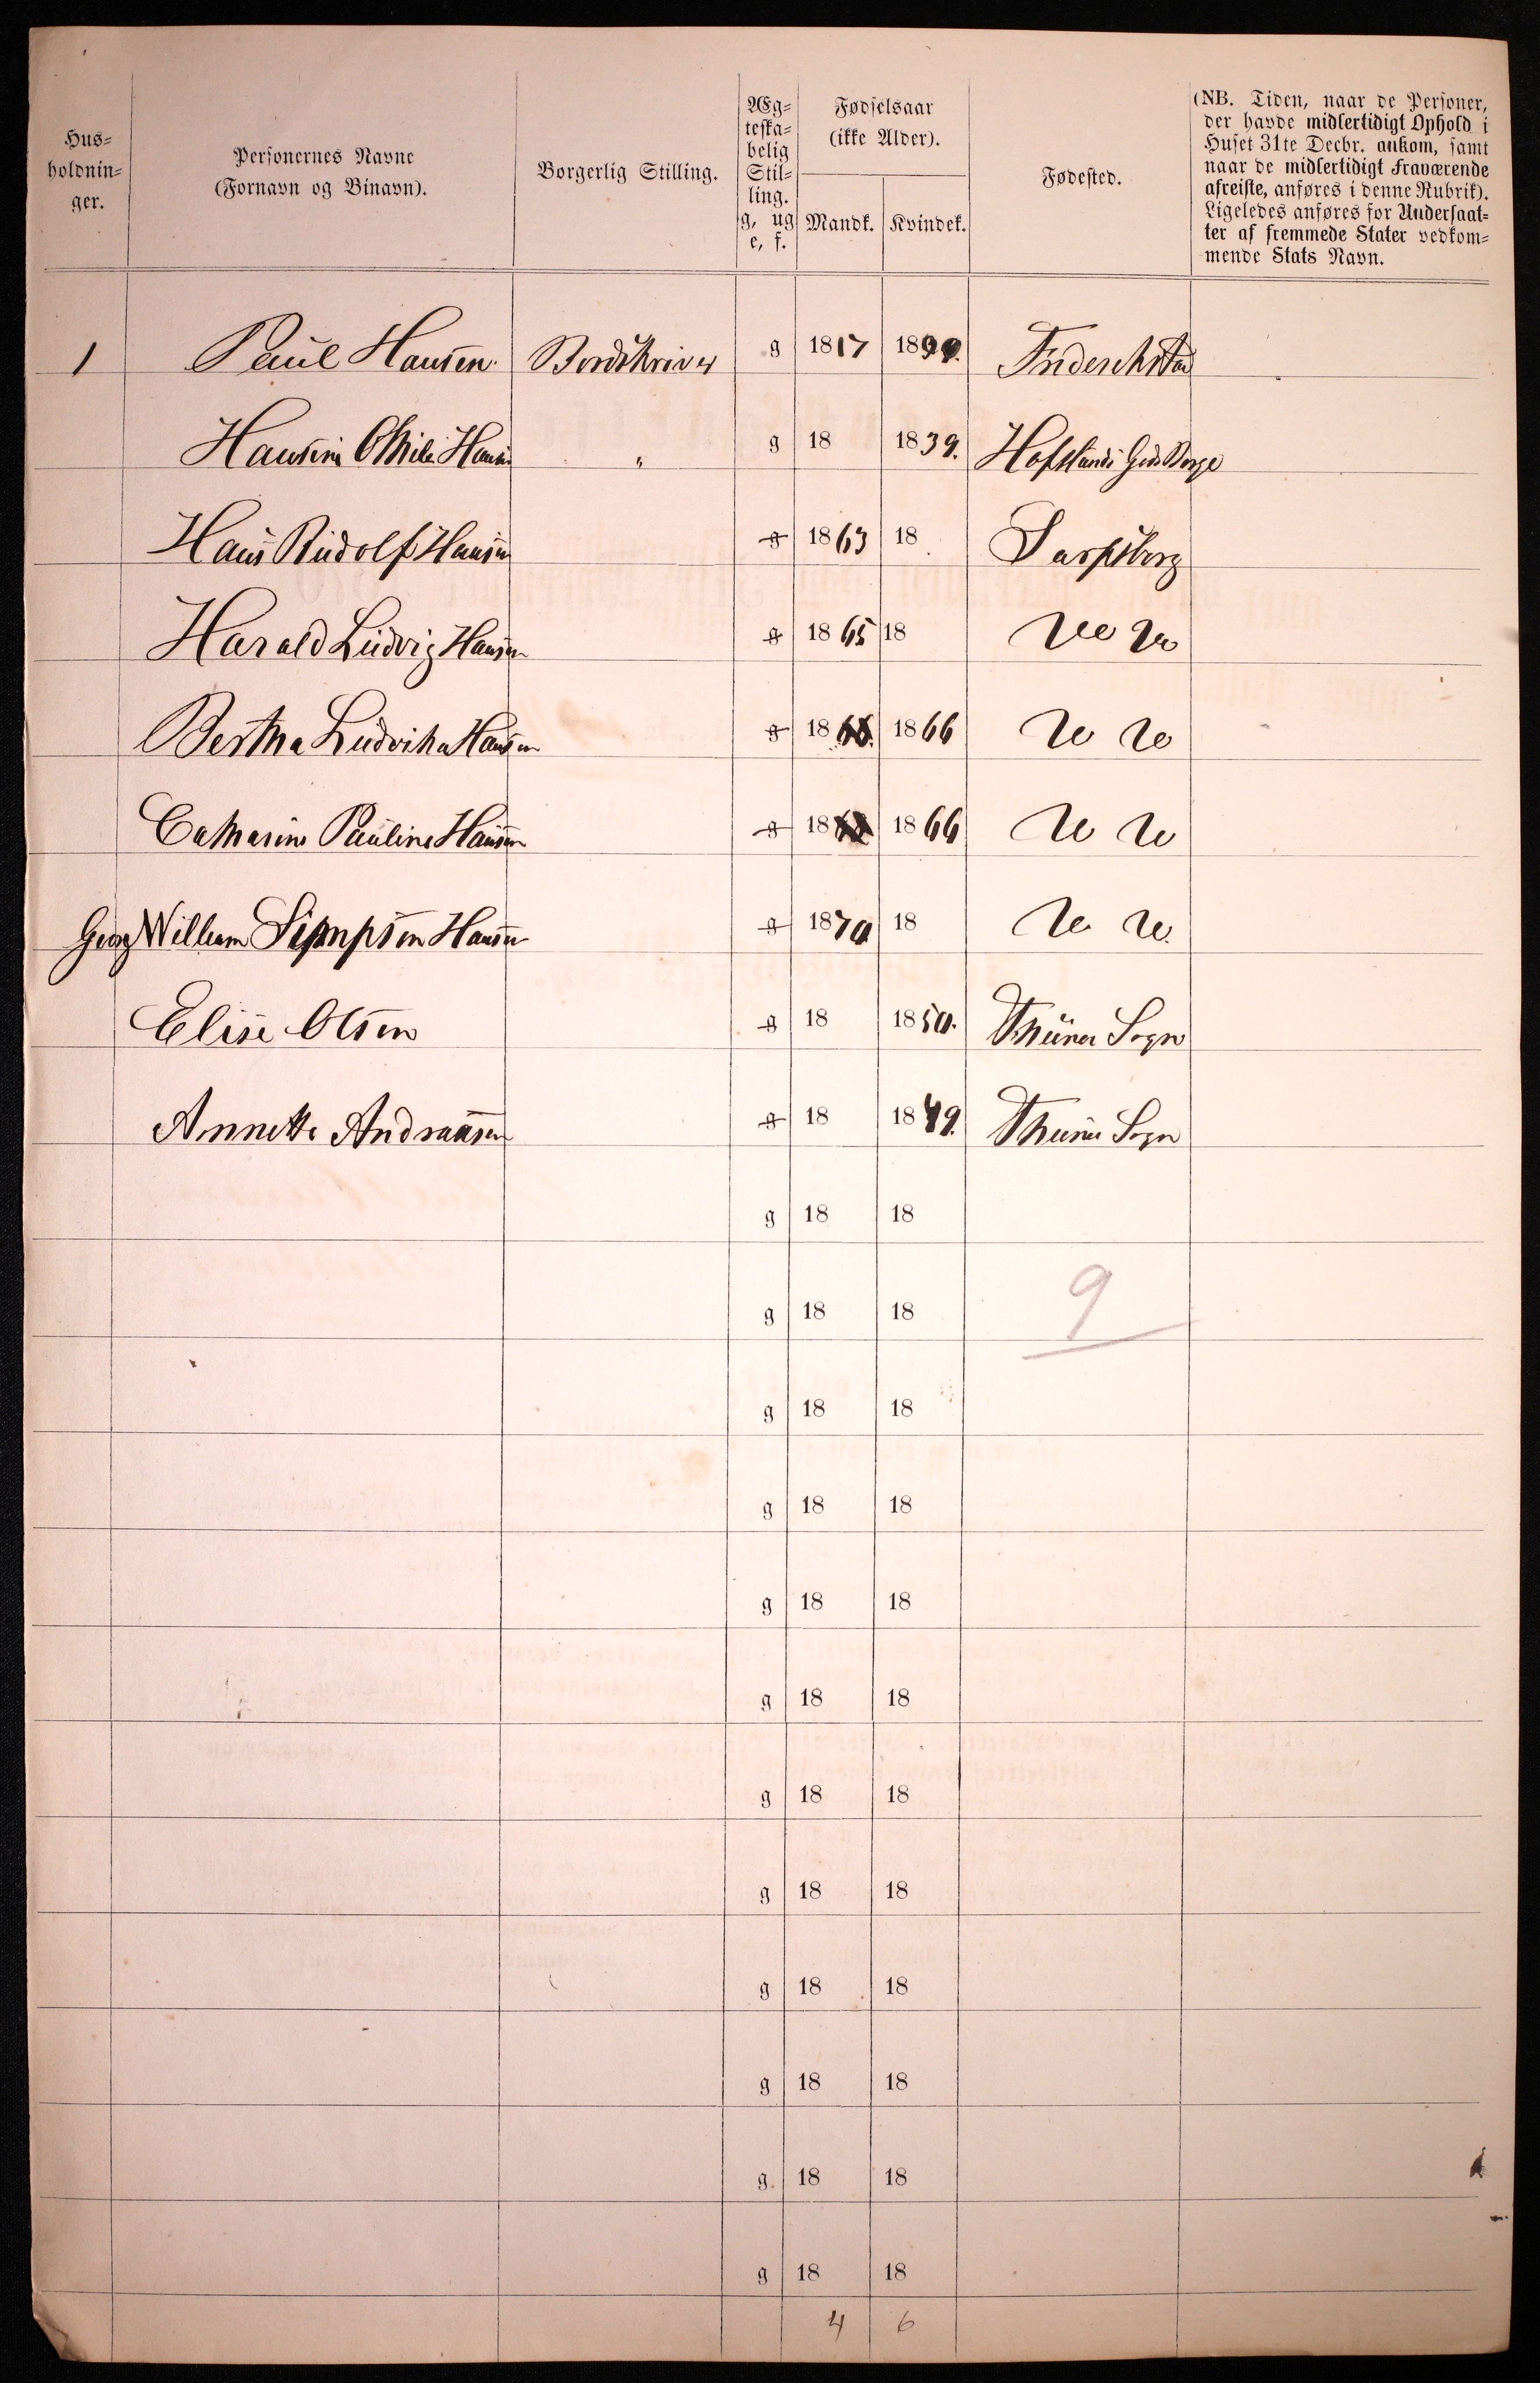 Hus=
holdnin=
ger.
Personernes Navne
(Fornavn og Binavn).
Borgerlig Stilling.
Æg=
teska=
belig
Stil=
ling.
g, ug
e, f.
Fødselsaar
(ikke Alder).
Mandk. Kvindek.
Fødested.
(NB. Tiden, naar de Personer,
der havde midlertidigt Ophold i
Huset 31te Decbr. ankom, samt
naar de midlertidigt Fraværende
afreiste, anføres i denne Rubrik).
Ligeledes anføres for Undersaat=
ter af fremmede Stater vedkom=
mende Stats Navn.
1 Paul Hansen Bordskriver g 1817 18
Hansen g 18 1839. Borge
Hans Rudolf Hansen g 1863 18 Sarpsborg
Harald Ludvig Hansen g 1865 18 do do
Bertha Ludvika Hansen g 18 1866 do do
Catharine Pauline Hansen g 18 1866 do do
Georg William Simpson Hansen g 1870 18 do do
Elise Olsen g 18 1850. Thune Sogn
Annette Andraasen g 18 1849. Thune Sogn
g 18 18
g 18 18 9
g 18 18
g 18 18
g 18 18
g 18 18
g 18 18
g 18 18
g 18 18
g 18 18
g. 18 18
g 18 18
4 6